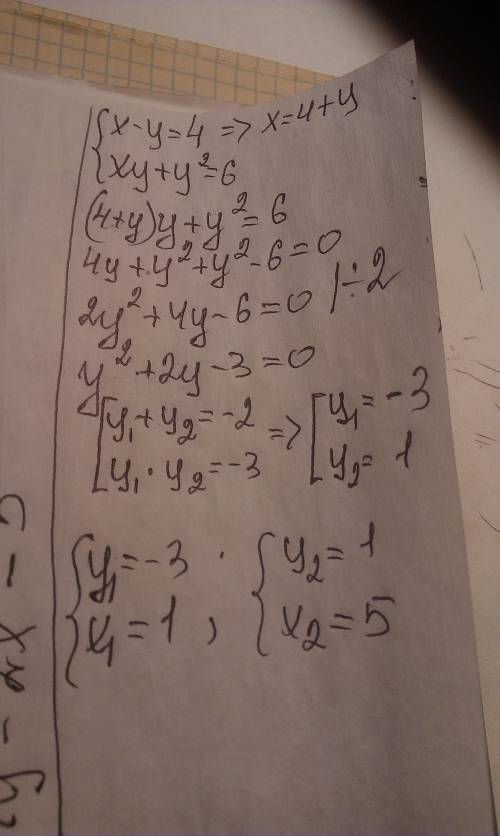 {x-y=4 => x=4+y
{xy+y²=6
(4+y)y+y²=6
4y+y²+y²-6=0
2y²+4y-6=0 |÷2
y²+2y-3=0
[y₁+y₂=-2 => [y₁=-3
[y₁·y₂=-3 [y₂=1
{y₁=-3 {y₂=1
{x₁=1, {x₂=5